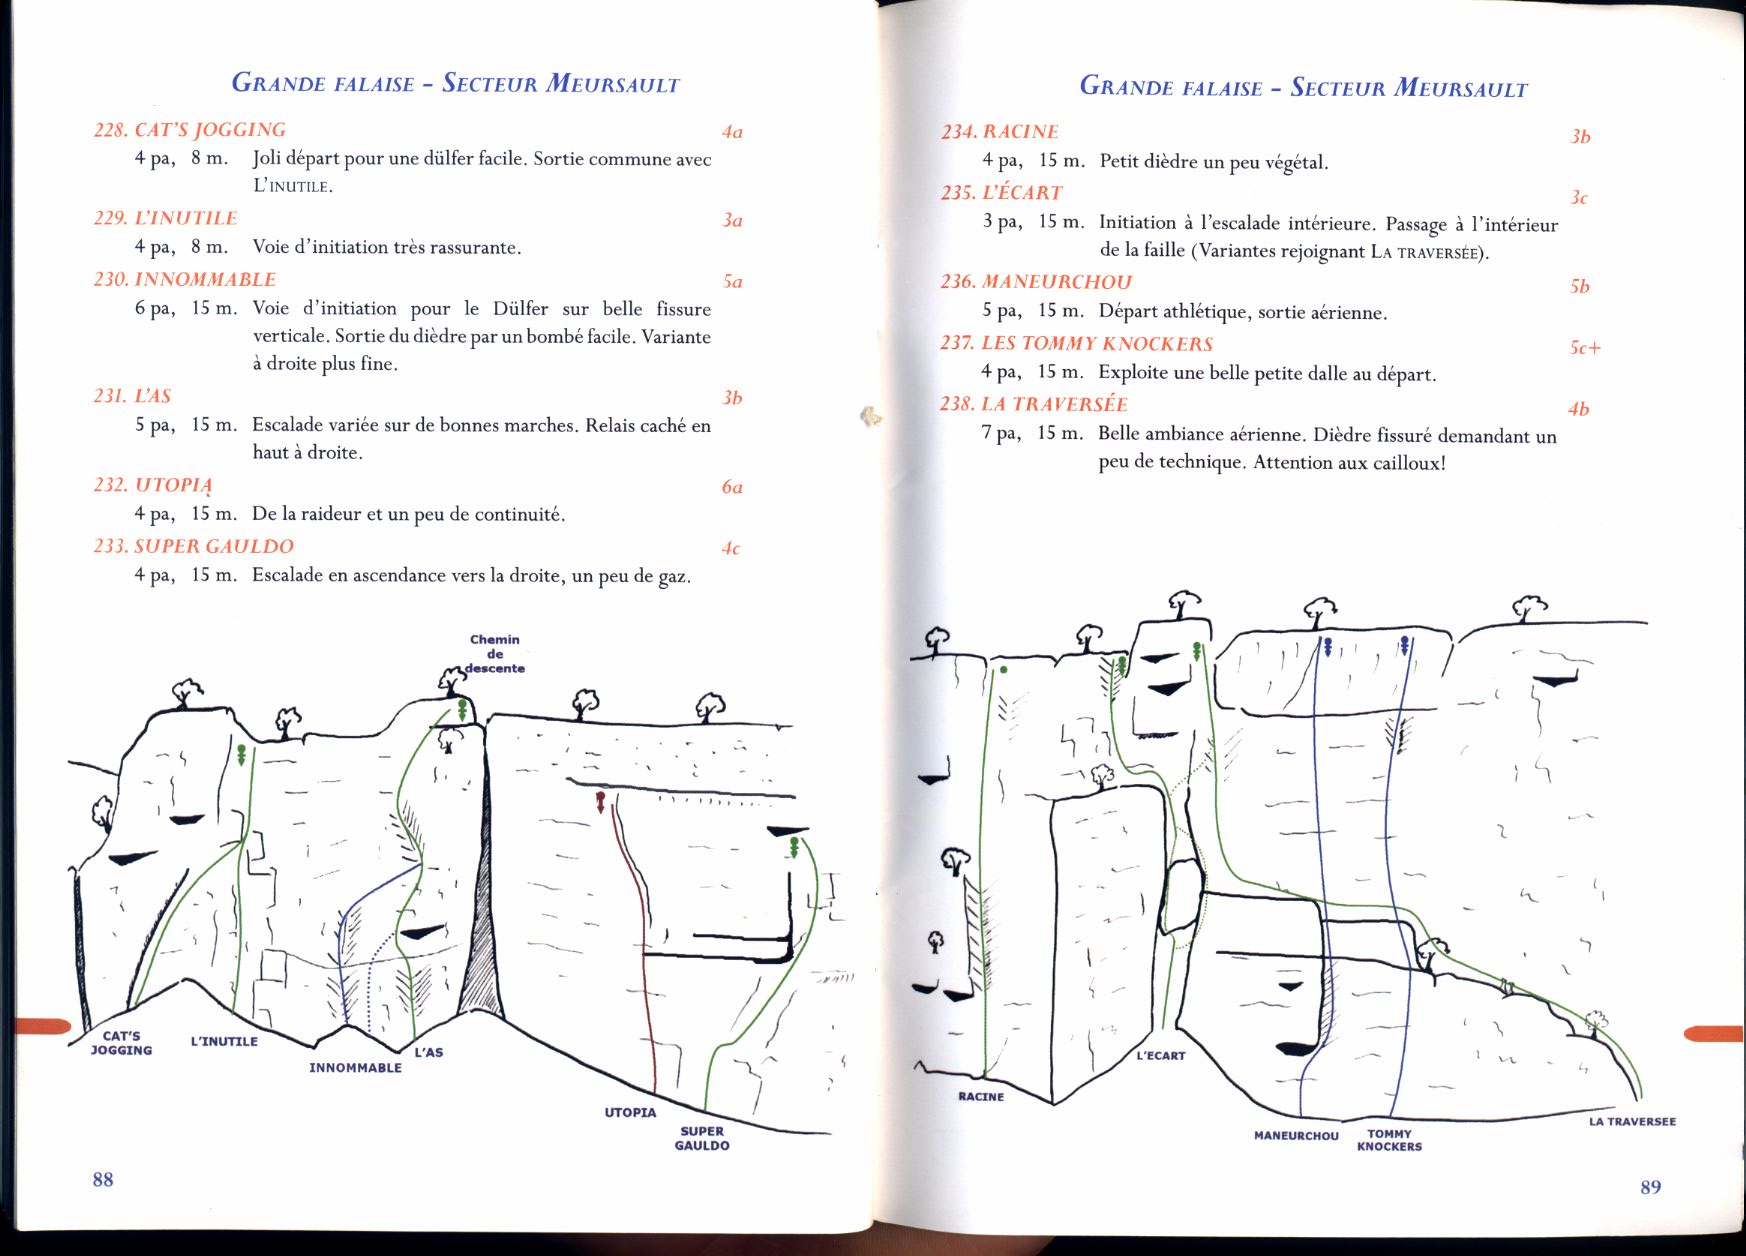 GRANDE FALAISE – SECTEUR MEURSAULT
228. CAT'S JOGGING 4a
4 pa, 8 m. Joli départ pour une dülfer facile. Sortie commune avec
L'INUTILE.
229. L'INUTILE 3a
4 pa, 8 m. Voie d'initiation très rassurante.
230. INNOMMABLE 5a
6 pa, 15 m. Voie d'initiation pour le Dülfer sur belle fissure
verticale. Sortie du dièdre par un bombé facile. Variante
à droite plus fine.
231. L'AS 3b
5 pa, 15 m. Escalade variée sur de bonnes marches. Relais caché en
haut à droite.
232. UTOPIA 6a
4 pa, 15 m. De la raideur et un peu de continuité.
233. SUPER GAULDO 4c
4 pa, 15 m. Escalade en ascendance vers la droite, un peu de gaz.
Chemin
de
descente
CAT'S
JOGGING
L'INUTILE
INNOMMABLE
L'AS
UTOPIA
SUPER
GAULDO
88
GRANDE FALAISE – SECTEUR MEURSAULT
234. RACINE 3b
4 pa, 15 m. Petit dièdre un peu végétal.
235. L'ÉCART 3c
3 pa, 15 m. Initiation à l'escalade intérieure. Passage à l'intérieur
de la faille (Variantes rejoignant LA TRAVERSÉE).
236. MANEURCHOU 5b
5 pa, 15 m. Départ athlétique, sortie aérienne.
237. LES TOMMY KNOCKERS 5c+
4 pa, 15 m. Exploite une belle petite dalle au départ.
238. LA TRAVERSÉE 4b
7 pa, 15 m. Belle ambiance aérienne. Dièdre fissuré demandant un
peu de technique. Attention aux cailloux!
RACINE
L'ECART
MANEURCHOU
TOMMY
KNOCKERS
LA TRAVERSEE
89